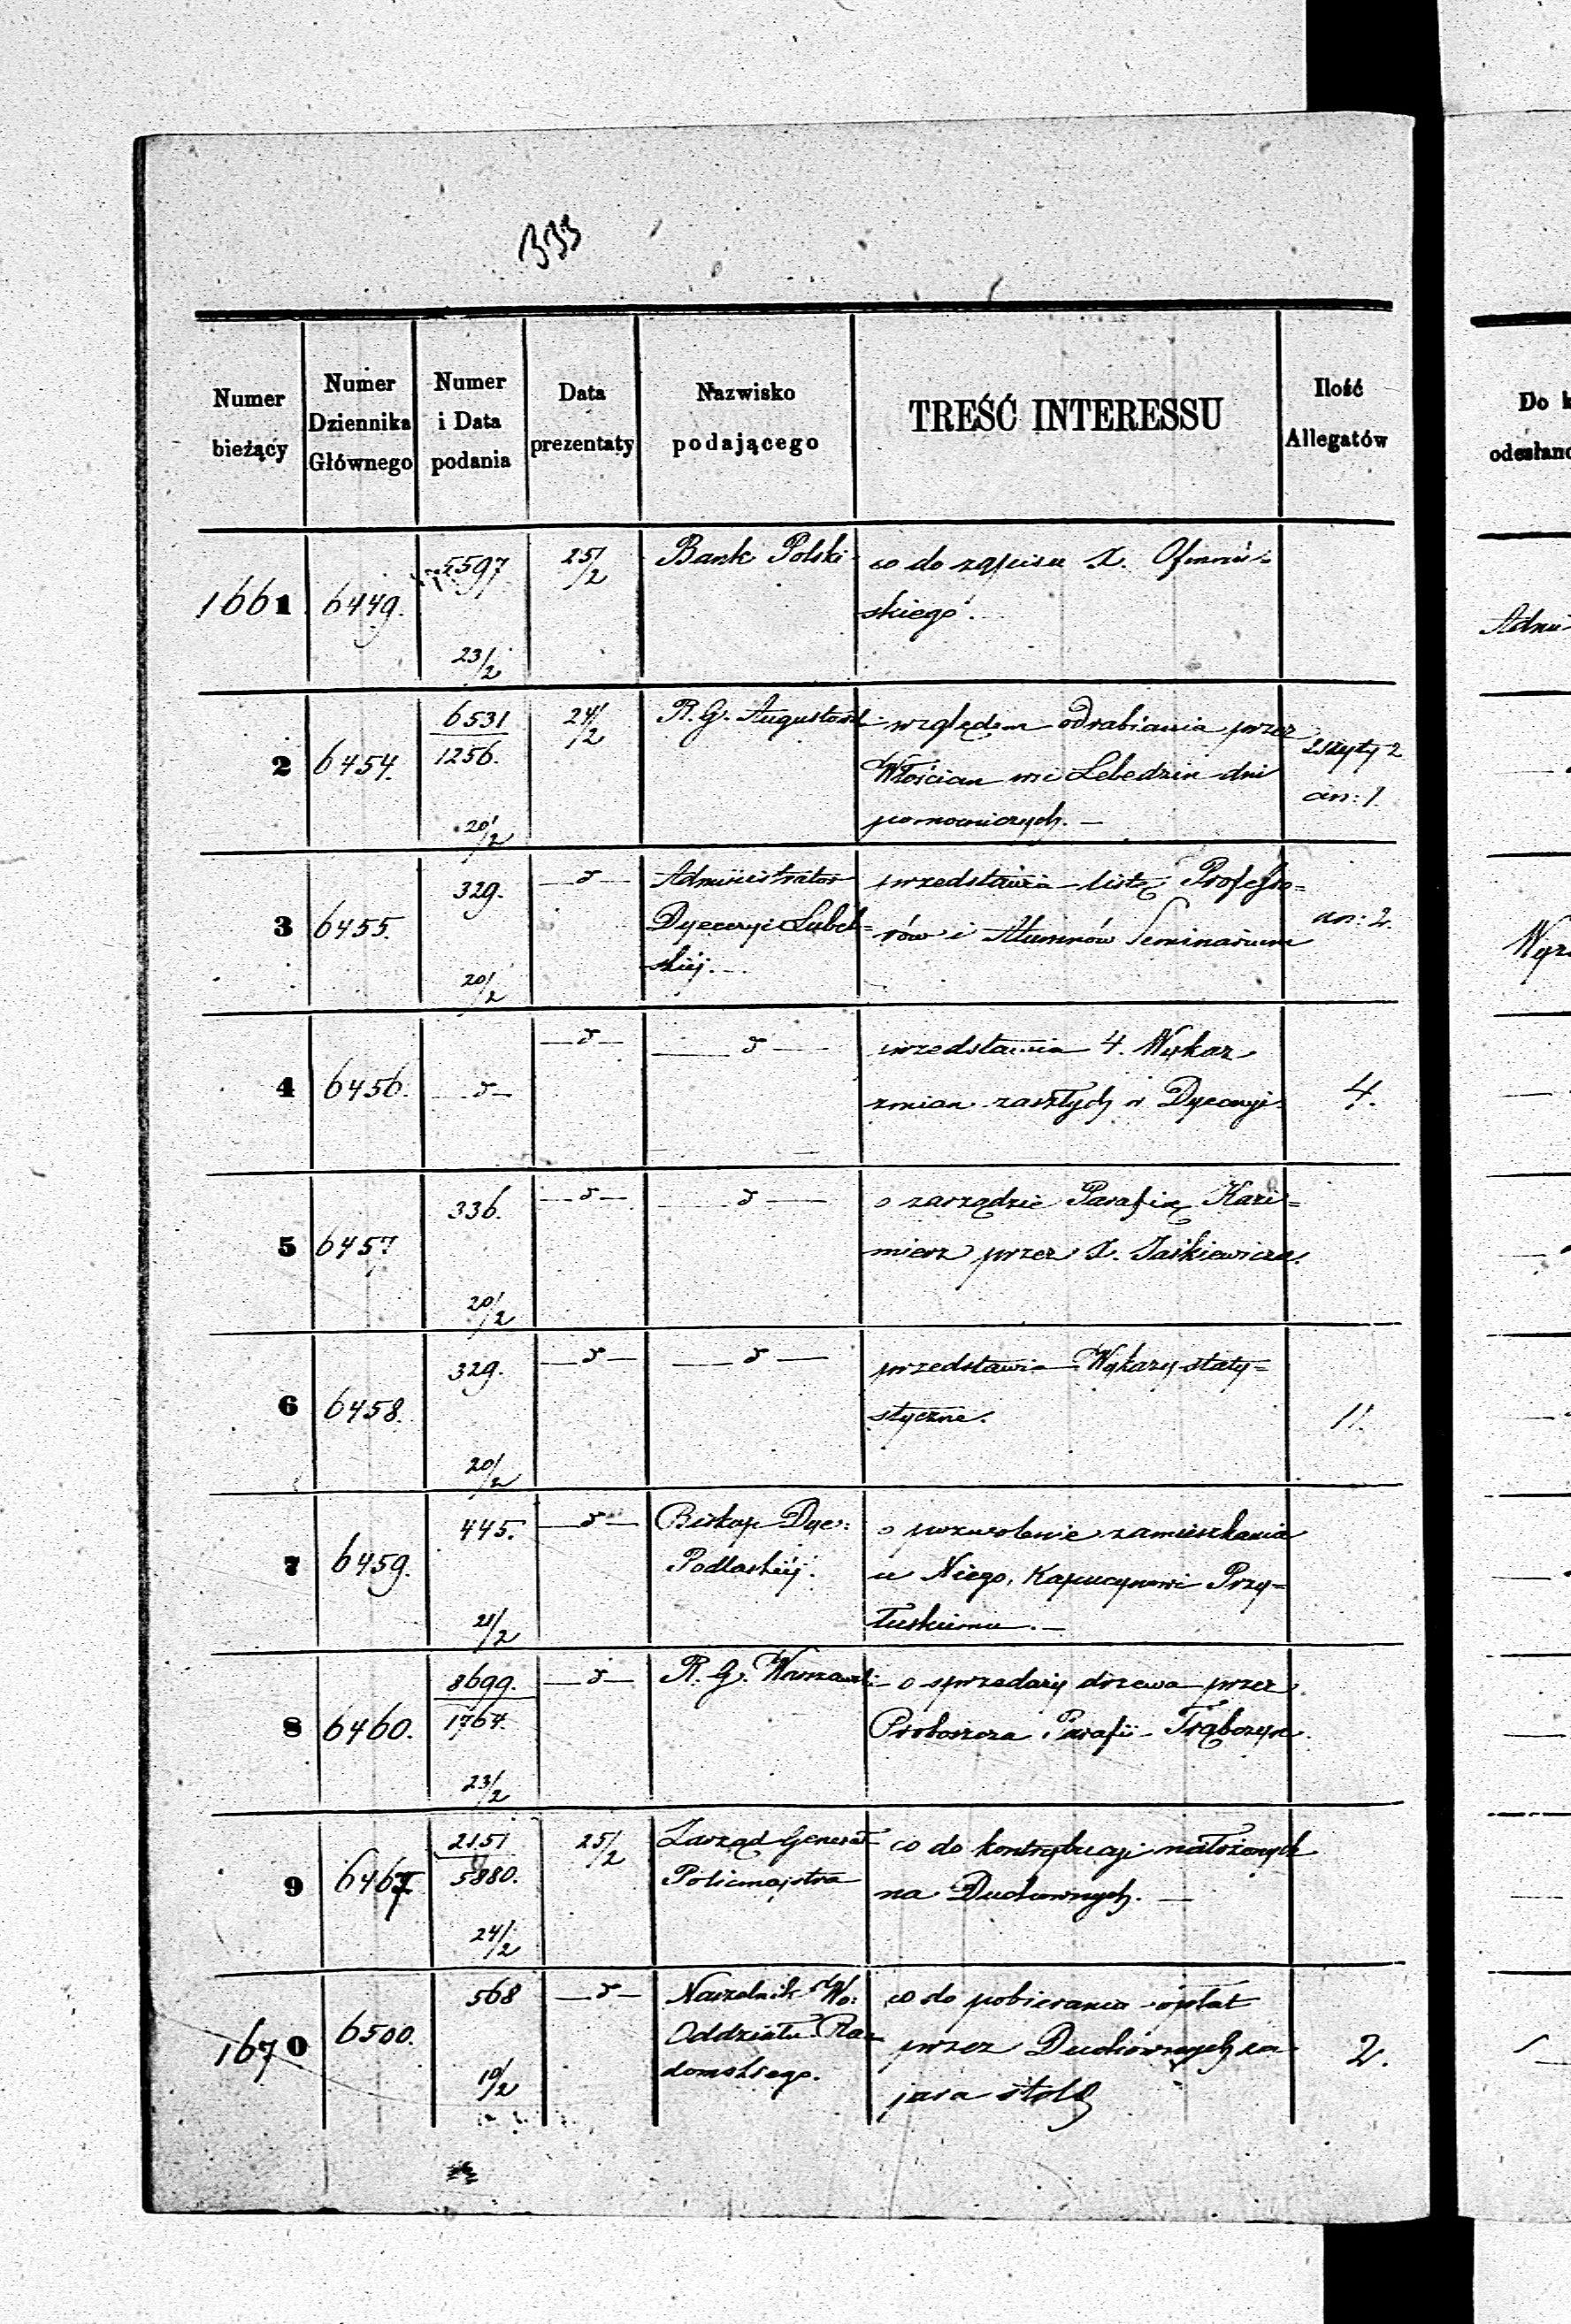 333
Numer bieżący
Numer Dziennika Głównego
Numer i Data podania
Data prezentaty
Nazwisko podającego
TREŚĆ INTERESSU
Ilość Allegatów
Do k
odesłano
1661 6449. 5597 25/2 Bank Polski co do zapisu X.
skiego.
23/2
Admi
2 6454. 6531 24/2 R. G. Augustowsk względem odrabiania przez zszyty 2
1256. Włościan wsi Lebedzin dni an: 1
20/2 pomocniczych. —
3 6455. 329. — d — Administrator przedstawia listę Professo= an: 2.
Dyecezyi Lubel= rów i Alumnów Seminarium
20/2 skiej. —
4 6456. — d — — d — — d — przedstawia 4. Wykaz 4.
zmian zaszłych w Dyecezyi
5 6457 336. — d — — d — o zarządzie Parafią Kazi=
mierz przez X. Jaśkiewicza.
20/2
6 6458. 329. — d — — d — przedstawia Wykazy staty=
styczne. 11.
20/2
7 6459. 445. — d — Biskup Dyec: o pozwolenie zamieszkania
Podlaskiej. u Niego, Kapucynowi Przy=
21/2 łuskiemu. —
8 6460. 8699. — d — R. G. Warszawski o sprzedaży drzewa przez
1764. Proboszcza Parafii Trąbczyn.
23/2
9 2151 25/2 Zarząd Generał co do kontrybucyi nałożonych
5880. Policmajstra na Duchownych. —
24/2
1670 6500. 568 — d — Naczelnik Wo: co do pobierania opłat
Oddziału Ra= przez Duchownych za 2.
10/2 domskiego. jura stolę